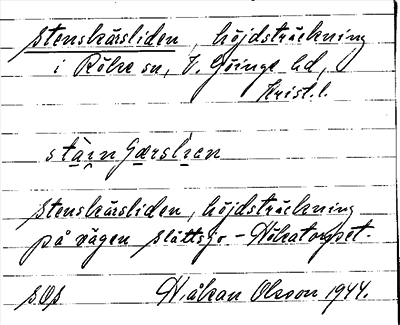 Stenskärsliden, höjdsträckning
i Röke sn, V. Göinge hd,
Krist. l.
stäingærslien
Stenskärsliden, höjdsträckning
på vägen Slättsjö - Hökatorpet.
SOs Håkan Olsson 1944.